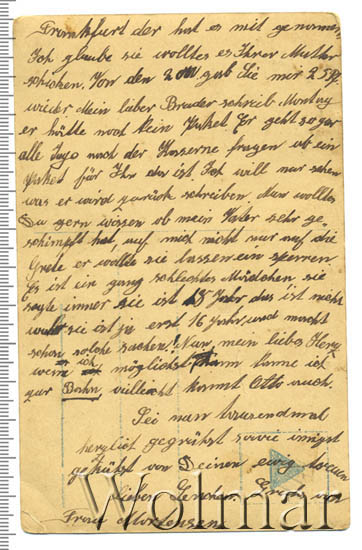 Frankfurt der hat es mit genommen
Ich glaube sie wolltes es Ihrer Mutter
schicken. Von den 20M gab Sie mir 2 5
wieder Mein lieber Bruder schrieb Montag
er hätte noch kein Paket Er geht sogar
alle Tage nach der Kasserne fragen ob ein
Paket für Ihr da ist. Ich will nur sehen
was er ward zurück schreiben Nun wolltes
Du gern wissen ob mein Vater sehr ge-
schimpft hat, auf mich nicht nur auf die
Grete er wollte sie lassen ein sperren
Es ist ein ganz schlechtes Mädchen sie
sagte immer sie ist 18 Jahr das ist nicht
wahr sie ist ja erst 16 Jahr und macht
schon solche sachen! Nun, mein liebes Herz
wenn möglich kome ich
zur Bahn vielleicht kommt Otto auch.
Sei nun tausendmal
herzlich gegrüßt sowie innigst
geküsst von Deinem ewig treuen
lieben Lenchen. Gruß von
Frau Mortensen
Wolmar